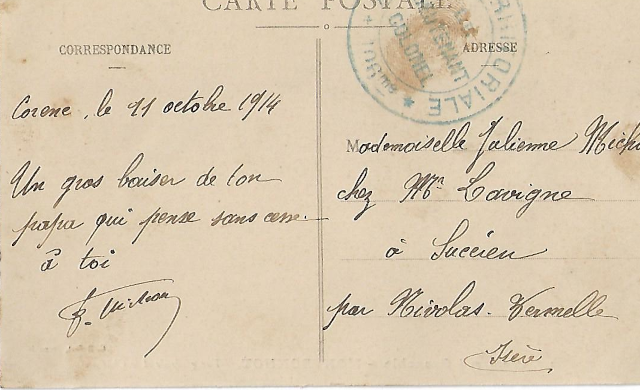 CARTE POSTALE
CORRESPONDANCE
ADRESSE
TERRITORIALE
LIEUTENANT
COLONEL
Corenc, le 11 octobre 1914
Un gros baiser de ton
papa qui pense sans cesse
à toi
Mademoiselle Julienne Mich
chez Mr Lavigne
à Succieu
par Nivolas-Vermelle
Isère